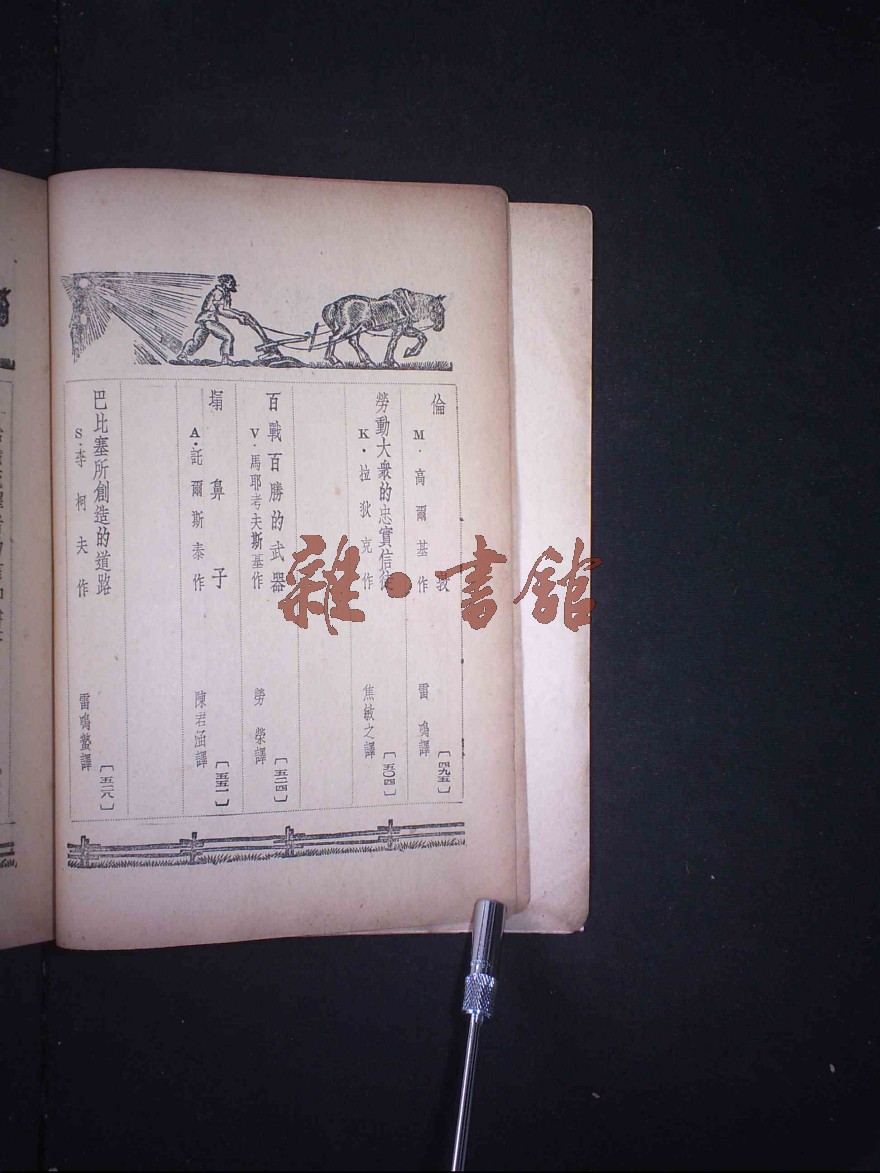 倫敦
M·高爾基作 雷鳴譯 [四九五]
勞動大衆的忠實信徒
K·拉狄克作 焦敏之譯 [五〇四]
百戰百勝的武器
V·馬耶考夫斯基作 勞榮譯 [五二四]
塌鼻子
A·託爾斯泰作 陳君涵譯 [五五一]
巴比塞所創造的道路
S·李柯夫作 雷鳴蟄譯
雜·書館